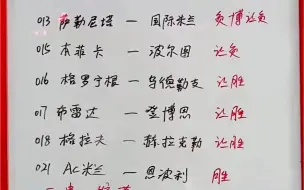 013 萨勒尼塔 — 国际米兰 负博让负
015 本菲卡 — 波尔图 让负
016 格罗宁根 — 乌德勒支 让胜
017 布雷达 — 登博思 让胜
018 格拉夫 — 赫拉克勒 让胜
021 AC米兰 — 恩波利 胜